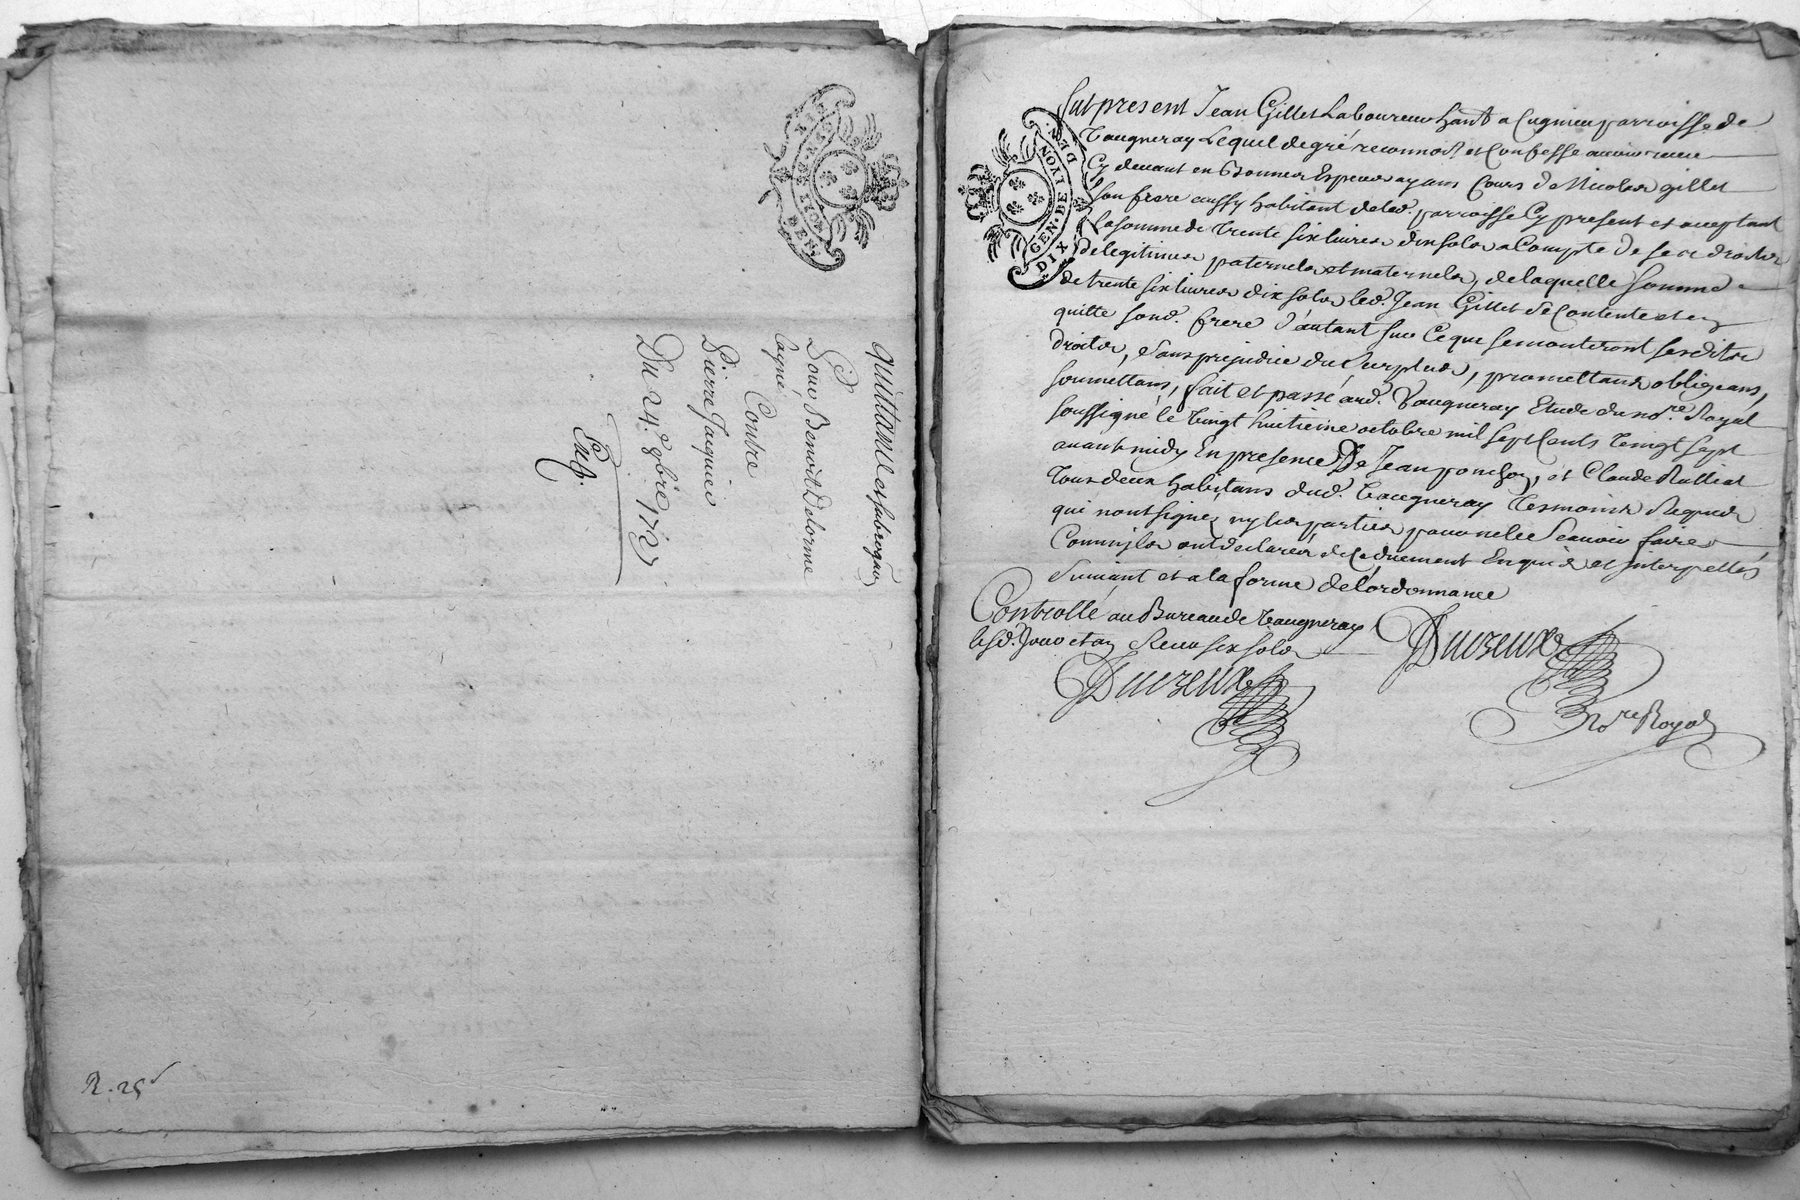 GEN. DE LYON
DIX DEN
quittance et subrogaōn
Pour Benoit Delorme
Contre
Pierre Jaquier
Du 24e. 8bre 1727
Exp.
R. 25s
GEN. DE LYON
DIX DEN.
fut present Jean Gillet Laboureur hant a Cuginieu parroisse de
Vaugneray Lequel de gré reconnoit et Confesse avoir receu
Cy devant en bonnes Especes ayans Cours de Nicolas gillet
son frere aussy habitant de lad. parroisse Cy present et acceptant
la somme de trente six livres dix sols a Compte de ses droits
de legitimes paternels et maternels, de laquelle somme
de trente six livres dix sols led. Jean Gillet se Contente et en
quitte sond. frere d'autant sur Ce que se monteront sesdits
droits, sans prejudice du surplus, promettans obligeans,
soumettans, fait et passé aud. Vaugneray Etude du nore. Royal
soussigné le vingt huitieme octobre mil sept Cents vingt sept
avant midy En presence De Jean ponchon, et Claude Ralliat
tous deux habitans dud. Vaugneray tesmoins Requis
qui n'ont signez ny les parties pour ne le Scavoir faire
Comm'ils ont declarés de Ce duement Enquis et interpellés
suivant et a la forme de l'ordonnance
Controllé au Bureau de Vaugneray
lesd. Jour et an Receu six sols
Duvzeux
Nore Royal